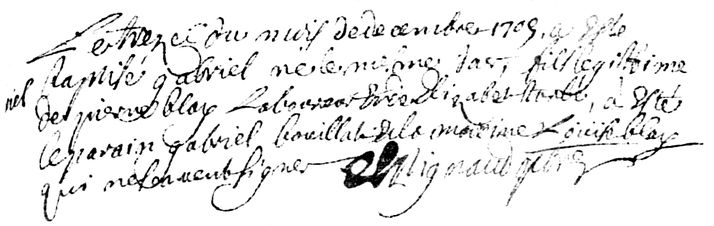 Le treze du mois de decembre 1705, a este
baptisé gabriel né le meme jour, fils legittime
de pierre blay Laboureur et de Elizabet, a esté
le parain gabriel bouillat et la maraine Louise blay
qui ne scavent signer